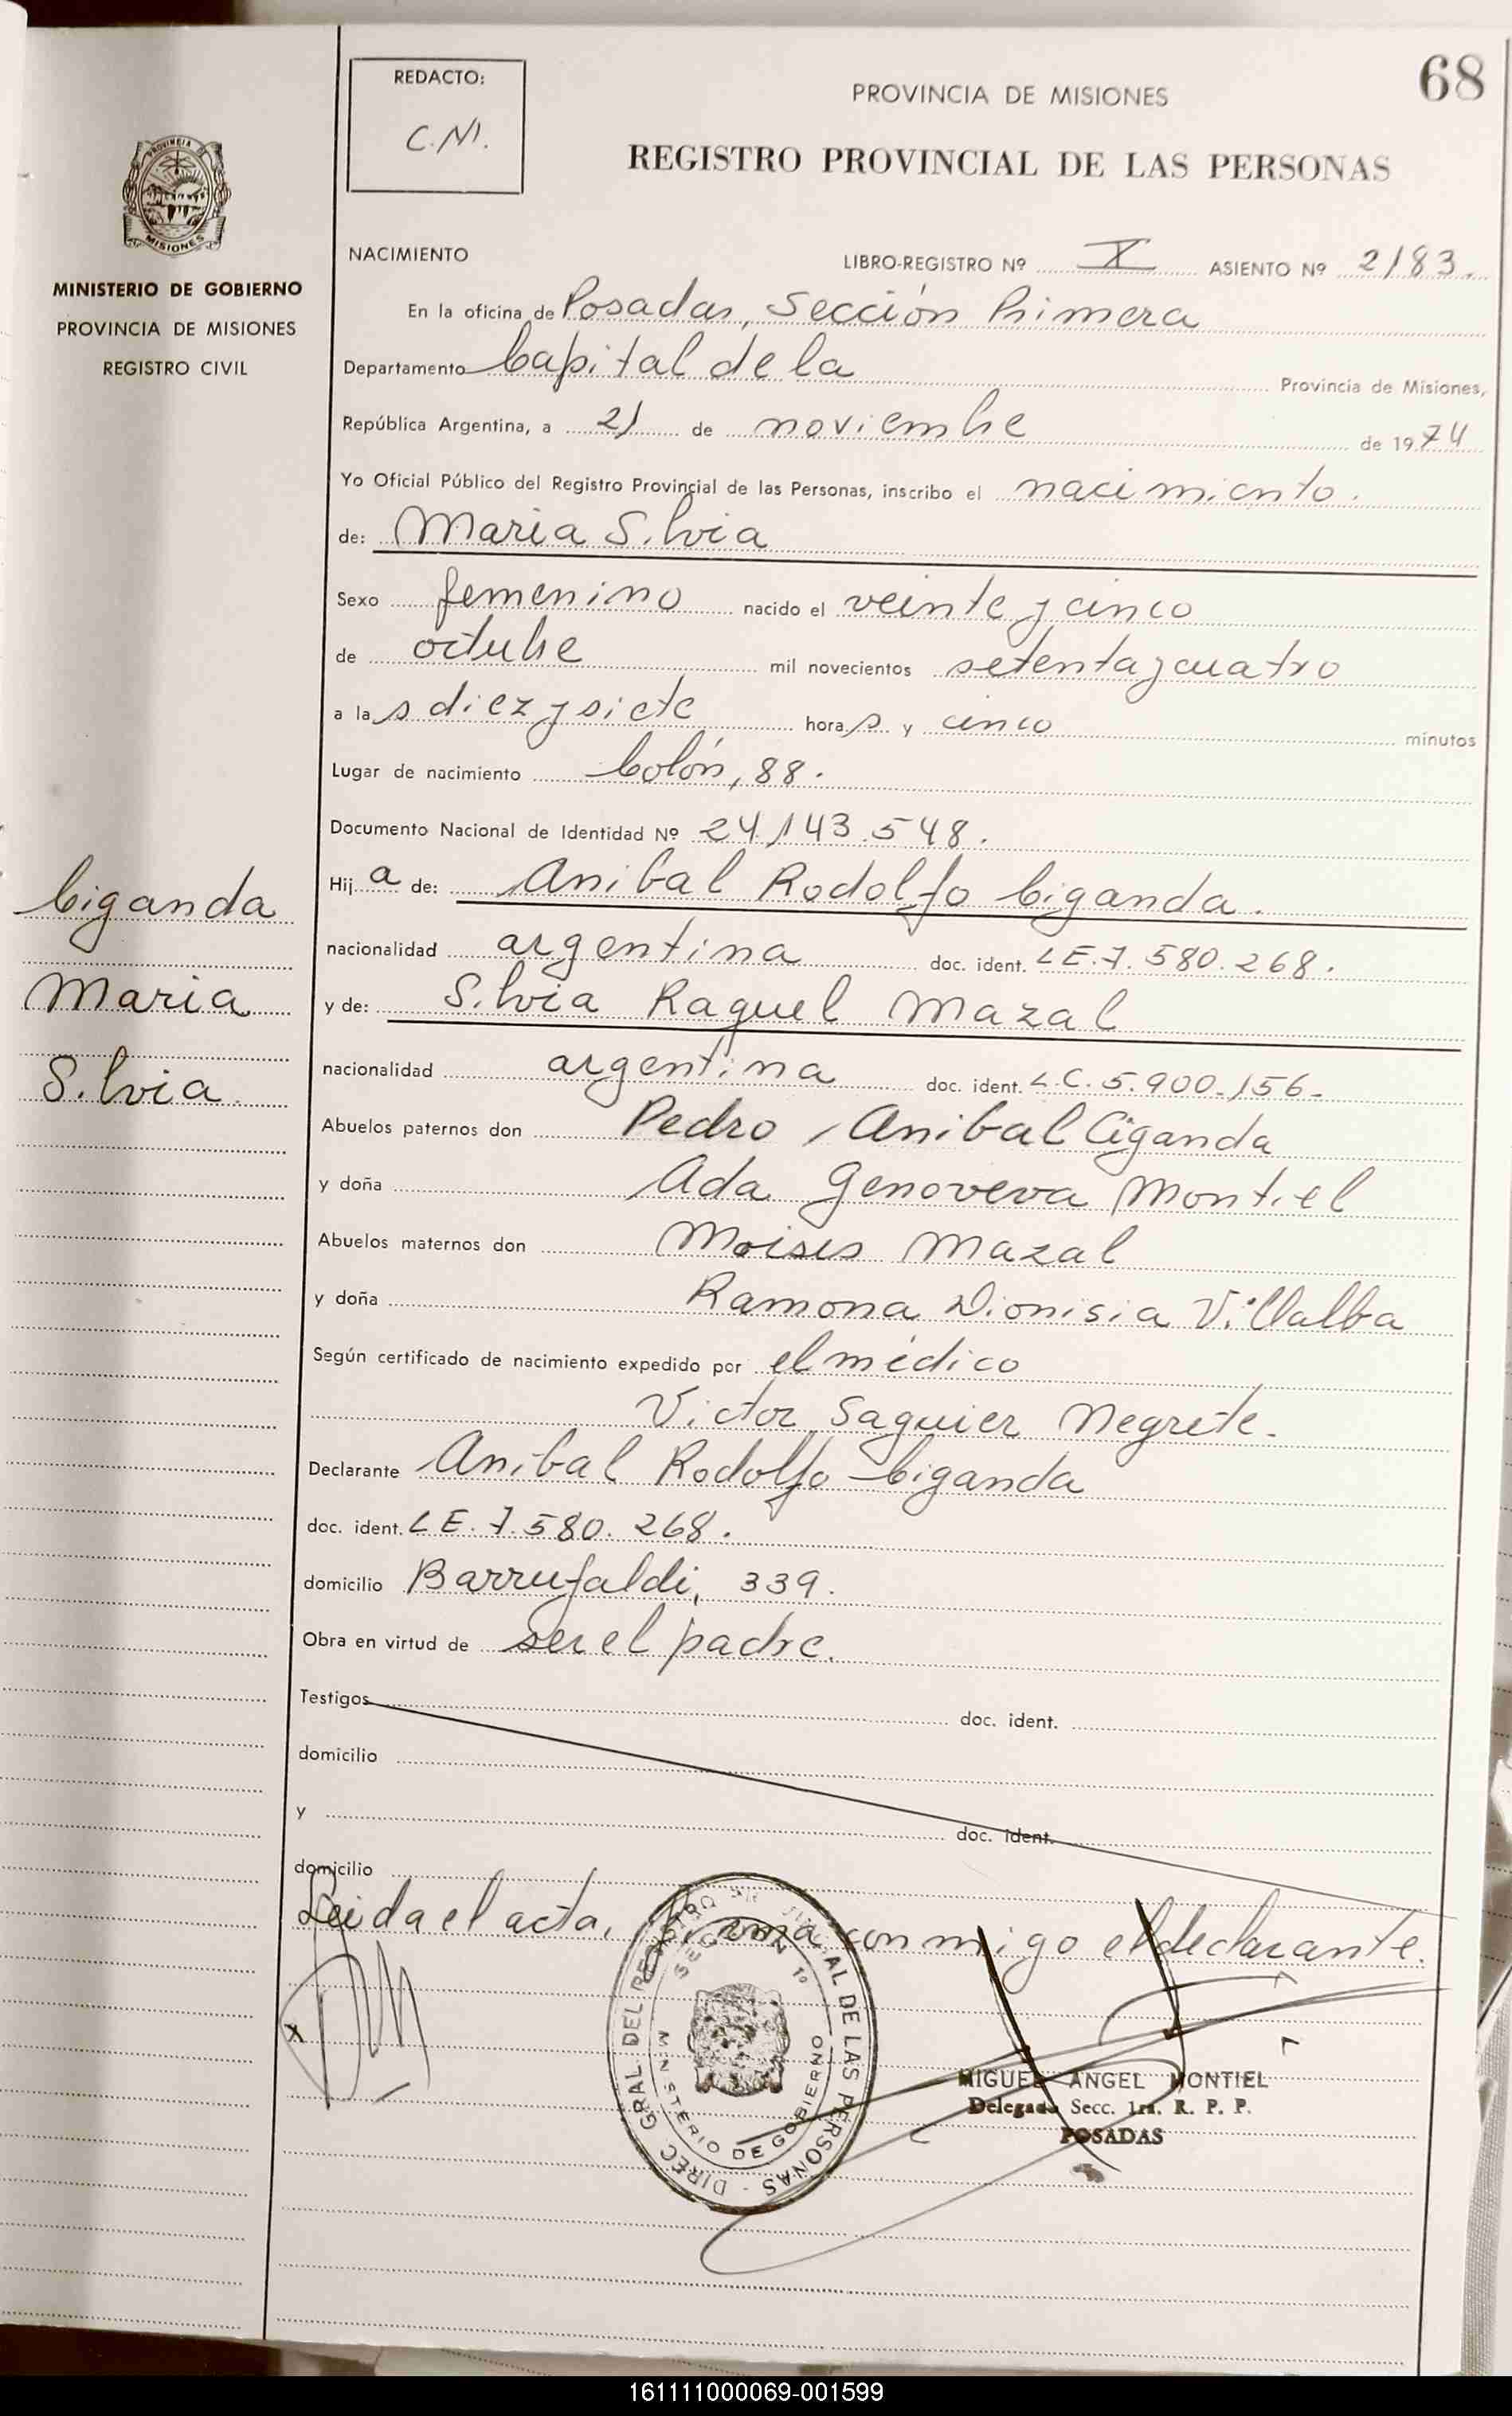 68
REDACTO:
C.M.
PROVINCIA DE MISIONES
REGISTRO PROVINCIAL DE LAS PERSONAS
PROVINCIA
MISIONES
MINISTERIO DE GOBIERNO
PROVINCIA DE MISIONES
REGISTRO CIVIL
NACIMIENTO LIBRO-REGISTRO Nº X ASIENTO Nº 2183.
En la oficina de Posadas, Sección Primera
Departamento Capital de la Provincia de Misiones,
República Argentina, a 21 de noviembre de 1974
Yo Oficial Público del Registro Provincial de las Personas, inscribo el nacimiento.
de: Maria Silvia
Sexo femenino nacido el veinte y cinco
de octubre mil novecientos setenta y cuatro
a las diez y siete horas y cinco minutos
Lugar de nacimiento Colón, 88.
Documento Nacional de Identidad Nº 24.143.548.
Hija de: Anibal Rodolfo Ciganda.
nacionalidad argentina doc. ident. LE. 7. 580. 268.
y de: Silvia Raquel Mazal
nacionalidad argentina doc. ident. L.C. 5.900.156.
Abuelos paternos don Pedro Anibal Ciganda
y doña Ada Genoveva Montiel
Abuelos maternos don Moises Mazal
y doña Ramona Dionisia Villalba
Según certificado de nacimiento expedido por el médico
Victor Saguier Negrete.
Declarante Anibal Rodolfo Ciganda
doc. ident. LE. 7. 580. 268.
domicilio Barrufaldi, 339.
Obra en virtud de ser el padre.
Testigos doc. ident.
domicilio
y doc. ident.
domicilio
Leida el acta, firma conmigo el declarante.
Ciganda
Maria
Silvia
DIREC. GRAL. DEL REGISTRO DE LAS PERSONAS
SECCION 1º
MINISTERIO DE GOBIERNO
MIGUEL ANGEL MONTIEL
Delegado Secc. 1ra. R. P. P.
POSADAS
161111000069-001599